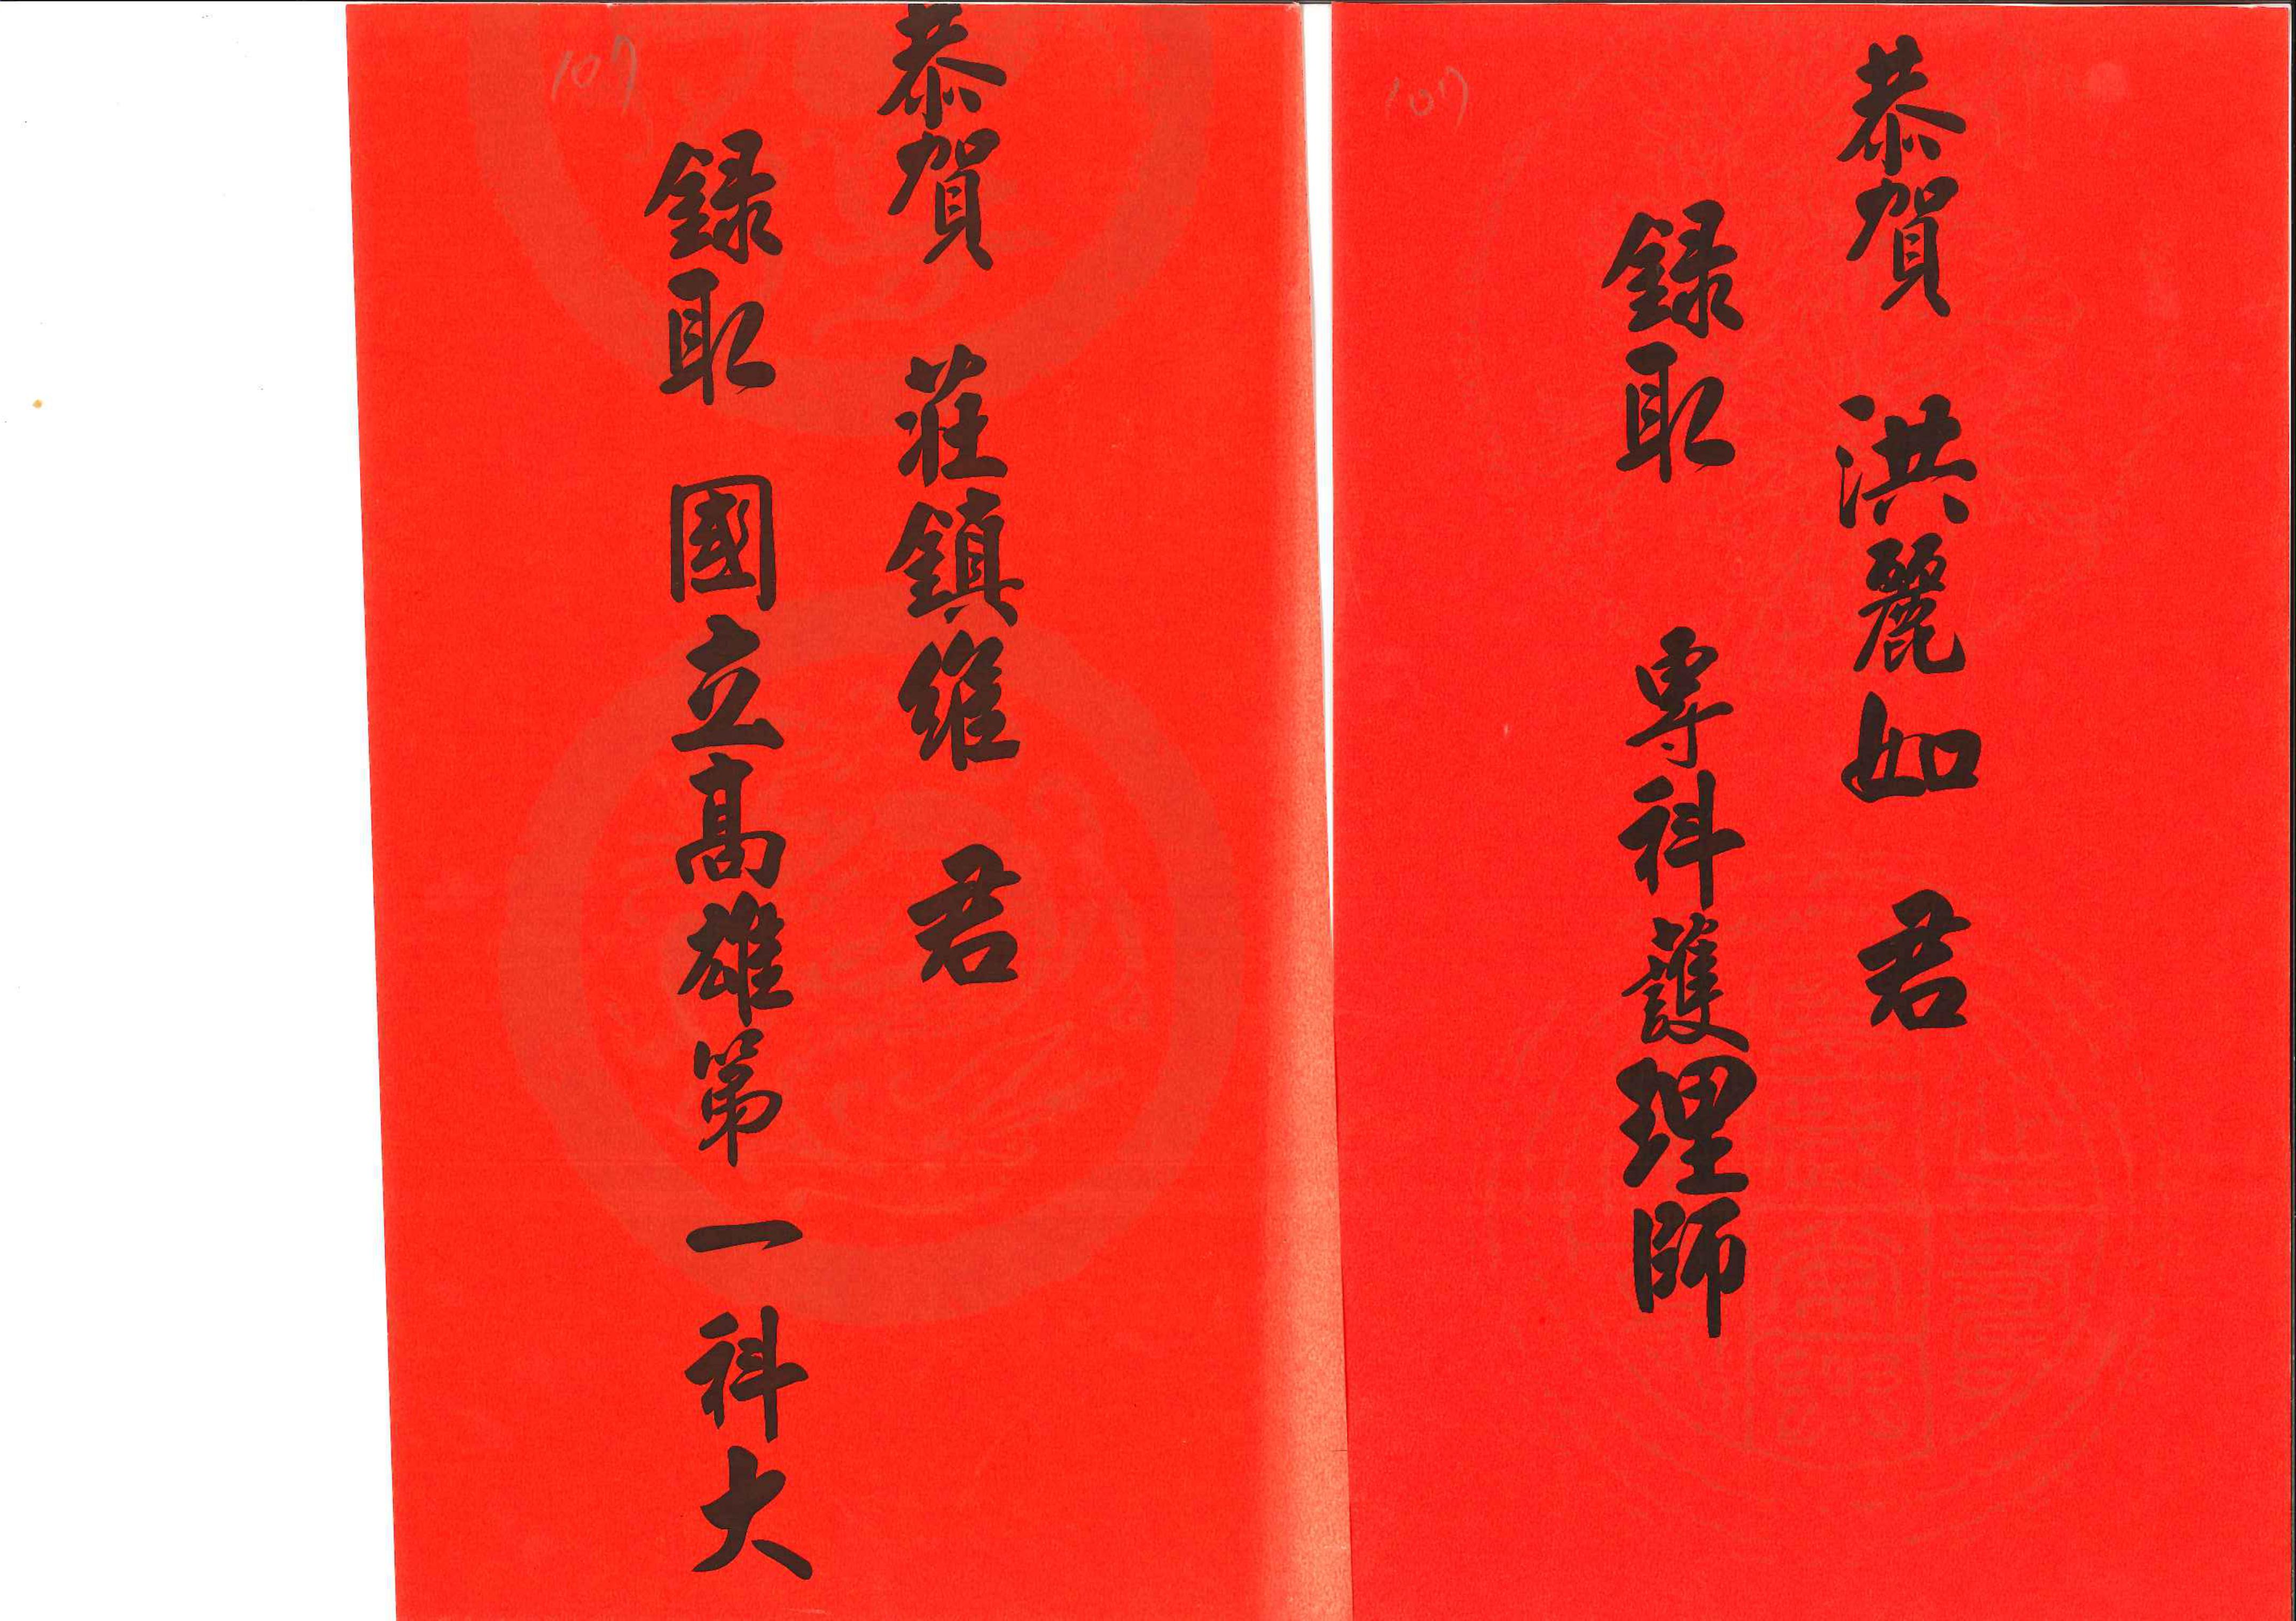 恭賀 洪麗如 君
錄取 專科護理師
107
恭賀 莊鎮維 君
錄取 國立高雄第一科大
107